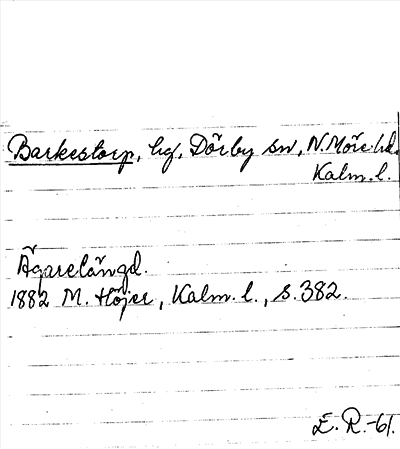 Barkestorp, hg, Dörby sn, N. Möre hd.
Kalm. l.
Ägarelängd.
1882 M. Höjer, Kalm. l., s. 382.
E. R.-61.